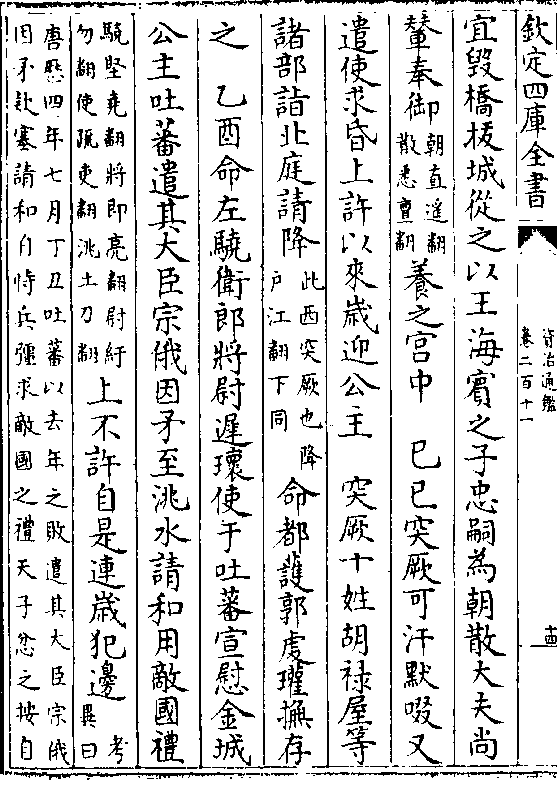 欽定四庫全書
資治通鑑
卷二百十一
十四
宜毀橋拔城從之以王海賓之子忠嗣為朝散大夫尚
輦奉御朝直遥翻散悉亶翻養之宫中　己巳突厥可汗默啜又
遣使求昏上許以來歳迎公主　突厥十姓胡禄屋等
諸部詣北庭請降此西突厥也降户江翻下同命都䕶郭䖍瓘撫存
之　乙酉命左驍衛郎將尉遲瓌使于吐蕃宣慰金城
公主吐蕃遣其大臣宗俄因矛至洮水請和用敵國禮
驍堅堯翻將即亮翻尉紆勿翻使疏吏翻洮土刀翻上不許自是連歳犯邊考異曰
唐歴四年七月丁丑吐蕃以去年之敗遣其大臣宗俄
因矛欵塞請和自恃兵彊求敵國之禮天子忿之按自